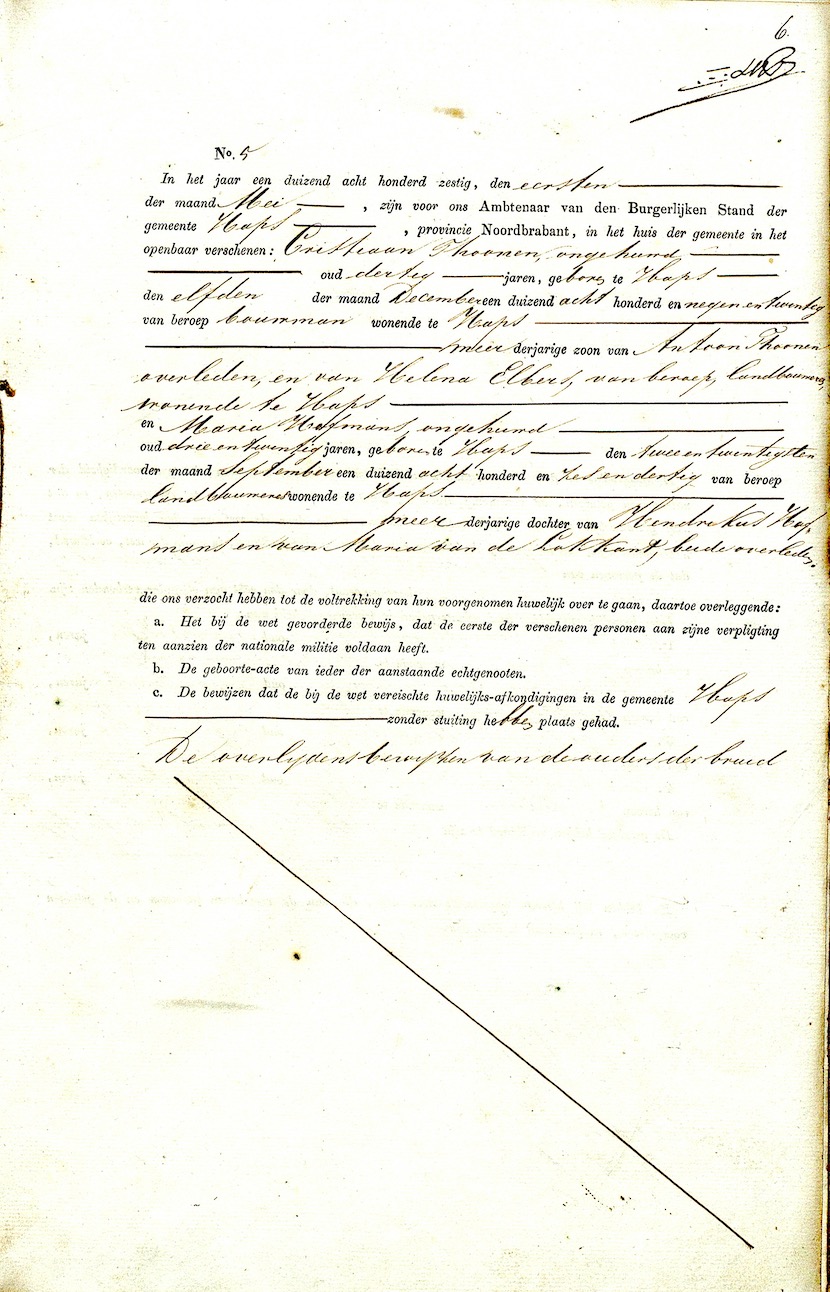 6.
No. 5
In het jaar een duizend acht honderd zestig, den eersten
der maand Mei , zijn voor ons Ambtenaar van den Burgerlijken Stand der
gemeente Haps , provincie Noordbrabant, in het huis der gemeente in het
openbaar verschenen: Cristiaan Thoonen, ongehuwd
oud dertig jaren, geboren te Haps
den elfden der maand December een duizend acht honderd en negen en twintig
van beroep bouwman wonende te Haps
meerderjarige zoon van Antoon Thoonen
overleden, en van Helena Elbers, van beroep, landbouweres,
wonende te Haps
en Maria Hofmans, ongehuwd
oud drie en twintig jaren, geboren te Haps den twee en twintigsten
der maand September een duizend acht honderd en zes en dertig van beroep
landbouweres wonende te Haps
meerderjarige dochter van Hendrikus Hof-
mans en van Maria van de Lokkant, beide overleden.
die ons verzocht hebben tot de voltrekking van hun voorgenomen huwelijk over te gaan, daartoe overleggende:
a. Het bij de wet gevorderde bewijs, dat de eerste der verschenen personen aan zijne verpligting
ten aanzien der nationale militie voldaan heeft.
b. De geboorte-acte van ieder der aanstaande echtgenooten.
c. De bewijzen dat de bij de wet vereischte huwelijks-afkondigingen in de gemeente Haps
zonder stuiting hebben plaats gehad.
De overlydensbewyzen van de ouders der bruid